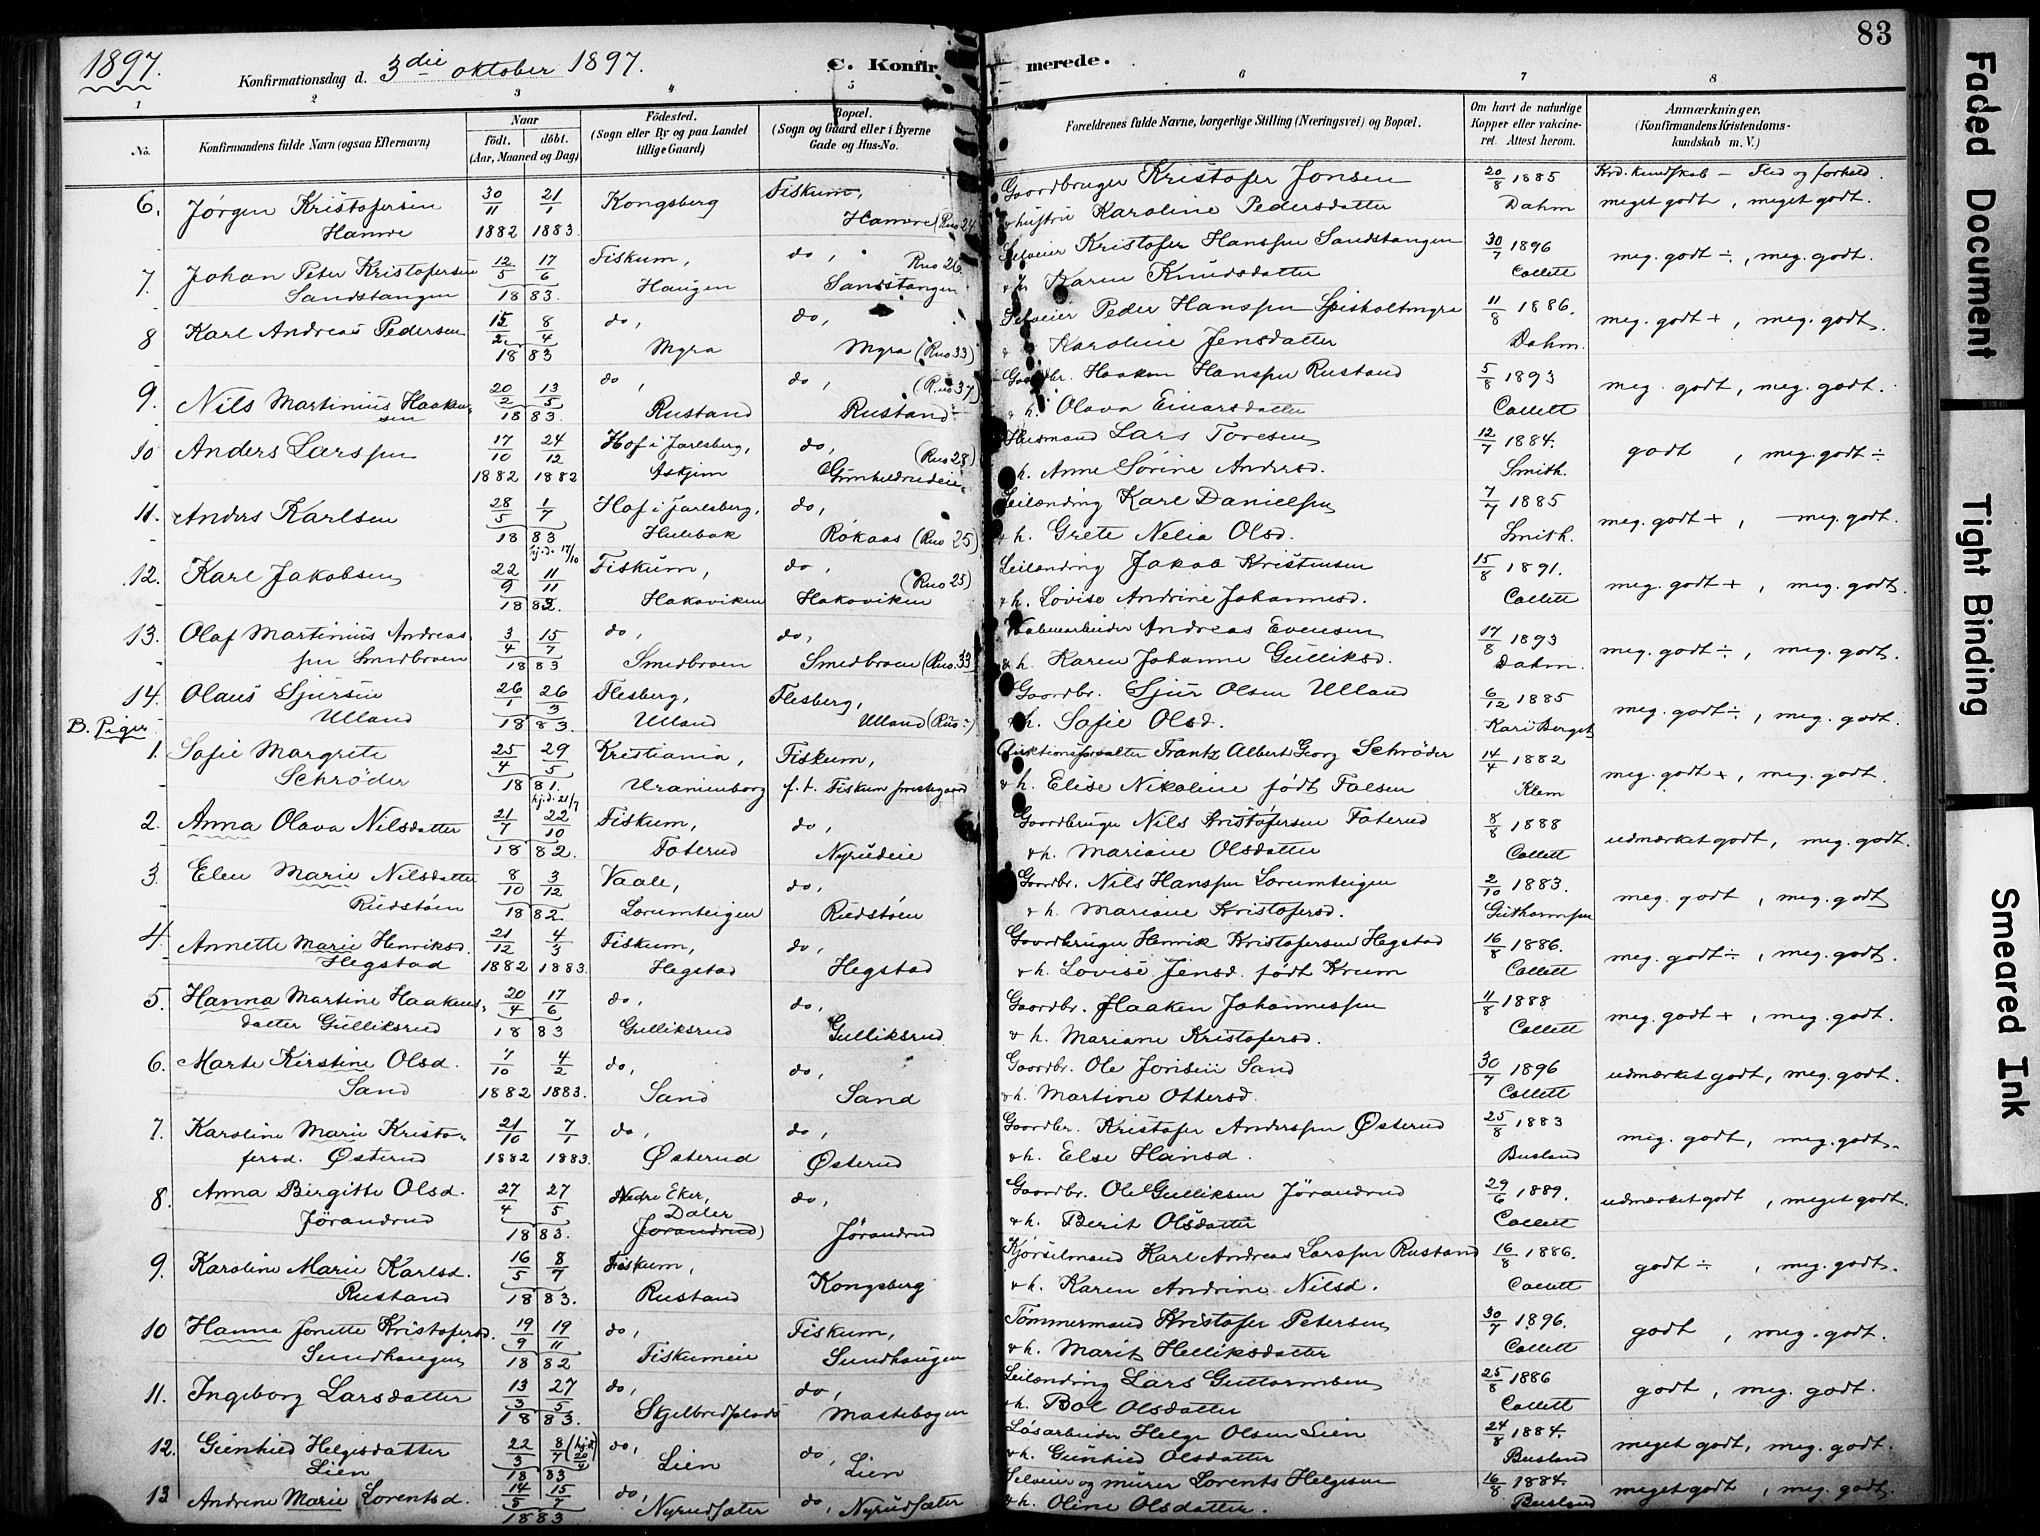 1897.
Konfirmationsdag d. 3die oktober 1897.
C. Konfirmerede.
83
1 2 3 4 5 6 7 8
No.
Konfirmandens fulde Navn (ogsaa Efternavn)
Naar
født. døbt.
(Aar, Maaned og Dag)
Fødested.
(Sogn eller By og paa Landet
tillige Gaard)
Bopæl.
(Sogn og Gaard eller i Byerne
Gade og Hus-No.
Forældrenes fulde Navne, borgerlige Stilling (Næringsvei) og Bopæl.
Om havt de naturlige
Kopper eller vakcine-
ret. Attest herom.
Anmærkninger.
(Konfirmandens Kristendoms-
kundskab m. V.)
6. Jørgen Kristofersen 30/11 21/1 Kongsberg Fiskum, Gaardbruger Kristofer Jonsen 20/8 1885 Krd. kundskab - Flid og forhold.
Hamre 1882 1883. Hamre (Rno 24 & hustru Karoline Pedersdatter Dahm meget godt, meget godt.
7. Johan Peter Kristofersen 12/5 17/6 Fiskum, do, Rno 26 Selveier Kristofer Hanssen Sandstangen 30/7 1896 meg. godt ÷, meg. godt.
Sandstangen 1883. Haugen Sandstangen & h. Karen Knudsdatter Collett
8 Karl Andreas Pedersen 15/2 8/4 do, do, Selveier Peder Hanssen Spisholtmyra 11/8 1886. meg. godt +, meg. godt.
1883 Myra Myra (Rno 33) Karoline Jensdatter Dahm.
9. Nils Martinius Haaken- 20/2 13/5 do, do, (Rno 37) Gaardbr. Haaken Hanssen Rustand 5/8 1893 meg. godt, meg. godt.
sen 1883. Rustand Rustand & h. Olava Einarsdatter Collett
10 Anders Larssen 17/10 24/12 Hof i Jarlsberg, do, (Rno 28) Husmand Lars Toresen 12/7 1884. godt, meg. godt ÷
1882 1882 Askjim Gunhildrudeie h. Anne Sørine Andersd. Smith.
11. Anders Karlsen 28/5 1/7 Hof i Jarlsberg, do, Leilending Karl Danielsen 7/7 1885 meg. godt +, meg. godt.
1883 Hulebak Røkaas (Rno 25) & h. Grete Nelia Olsd. Smith.
12. Karl Jakobsen 22/9 hj.d. 17/10 11/11 Fiskum, do, (Rno 25) Leilending Jakob Kristensen 15/8 1891. meg. godt +, meg. godt.
1882. Hakaviken Hakaviken & h. Lovise Andrine Johannesd. Collett
13. Olaf Martinius Andreas- 3/4 15/7 do, do, Andreas Evensen 17/8 1893 meg. godt ÷, meg. godt.
sen Smedbraen 1883 Smedbraen Smedbraen (Rno. 33 & h. Karen Johanne Gulliksd. Dahm.
14. Olaus Sjursen 26/1 26/3 Flesberg, Flesberg, Gaardbr. Sjur Olsen Ulland 6/12 1885 meg. godt ÷, meg. godt.
Ulland 1883. Ulland Ulland (Rno ÷) & h. Sofie Olsd. Kari Berget
B. Piger
1. Sofie Margrete 25/4 29/5 Kristiania, Fiskum, Frantz Albert Georg Schrøder 14/4 1882 meg. godt +, meg. godt.
Schrøder 1881. Uranienborg f. t. Fiskum prestegaard & h. Elise Nikoline født Falsen Klem
2. Anna Olava Nilsdatter 21/7 hj.d. 21/7 22/10 Fiskum, do, Gaardbruger Nils Kristofersen Foterud 8/8 1888 udmærket godt, meg. godt.
1882. Foterud Nyrudeie & h. Mariane Olsdatter Collett
3. Elen Marie Nilsdatter 8/10 3/12 Vaale, do, Gaardbr. Nils Hanssen Lorumteigen 2/10 1883. meg. godt, meg. godt
Rudstøen 1882. Lorumteigen Rudstøen & h. Mariane Kristofersd. Guthormsen
4. Annette Marie Henriksd. 21/12 4/3 Fiskum, do, Gaardbruger Henrik Kristofersen Hegstad 16/8 1886. meg. godt ÷, meg. godt.
Hegstad 1882 1883. Hegstad Hegstad & h. Lovise Jensd. født Krum Collett
5. Hanna Martine Haakens- 20/4 17/6 do, do, Gaardbr. Haaken Johannessen 11/8 1888 meg. godt +, meg. godt.
datter Gulliksrud 1883 Gulliksrud Gulliksrud & h. Mariane Kristofersd. Collett
6. Marte Kirstine Olsd. 7/10 4/2 do, do, Gaardbr. Ole Jonsen Sand 30/7 1896 udmærket godt, meg. godt.
Sand 1882 1883. Sand Sand & h. Martine Ottersd. Collett
7. Karoline Marie Kristo- 21/10 7/1 do, do, Gaardbr. Kristofer Anderssen Østerud 25/8 1883 meg. godt, meg. godt.
fersd. Østerud 1882 1883. Østerud Østerud & h. Else Hansd. Busland
8. Anna Birgitte Olsd. 27/4 27/5 Nedre Eker, do, Gaardbr. Ole Gulliksen Jørandrud 29/6 1889. udmærket godt, meget godt.
Jørandrud 1883. Daler (Jørandrud) Jørandrud & h. Berit Olsdatter Collett
9. Karoline Marie Karlsd. 16/5 8/7 Fiskum, Kongsberg Kjørselmand Karl Andreas Larssen Rustand 16/8 1886. godt ÷, meg. godt.
Rustand 1883. Rustand & h. Karen Andrine Nilsd. Collett
10 Hanna Jonette Kristofersd. 19/9 19/11 do, Fiskum, Tømmermand Kristofer Petersen 30/7 1896. godt, meg. godt.
Sundhaugen 1882 Fiskumeie Sundhaugen & h. Marit Helliksdatter Collett
11. Ingeborg Larsdatter 13/3 27/5 do, do, Leilending Lars Guttormsen 25/8 1886 godt, meg. godt.
1883. Skjelbredplads Mastebogen h. Bol Olsdatter Collett
12. Gunhild Helgesdatter 22/3 8/7 (hj.d. do, do, Løsarbeider Helge Olsen Lien 24/8 1884. meget godt, meg. godt.
Lien 1883 Lien Lien & h. Gunhild Olsdatter Busland
13 Andrine Marie Lorentsd. 14/5 15/7 do, do, Selveier og murer Lorents Helgesen 16/8 1884. meget godt, meg. godt.
1883 Nyrudsæter Nyrudsæter & h. Oline Olsdatter. Busland
Faded Document
Tight Binding
Smeared Ink